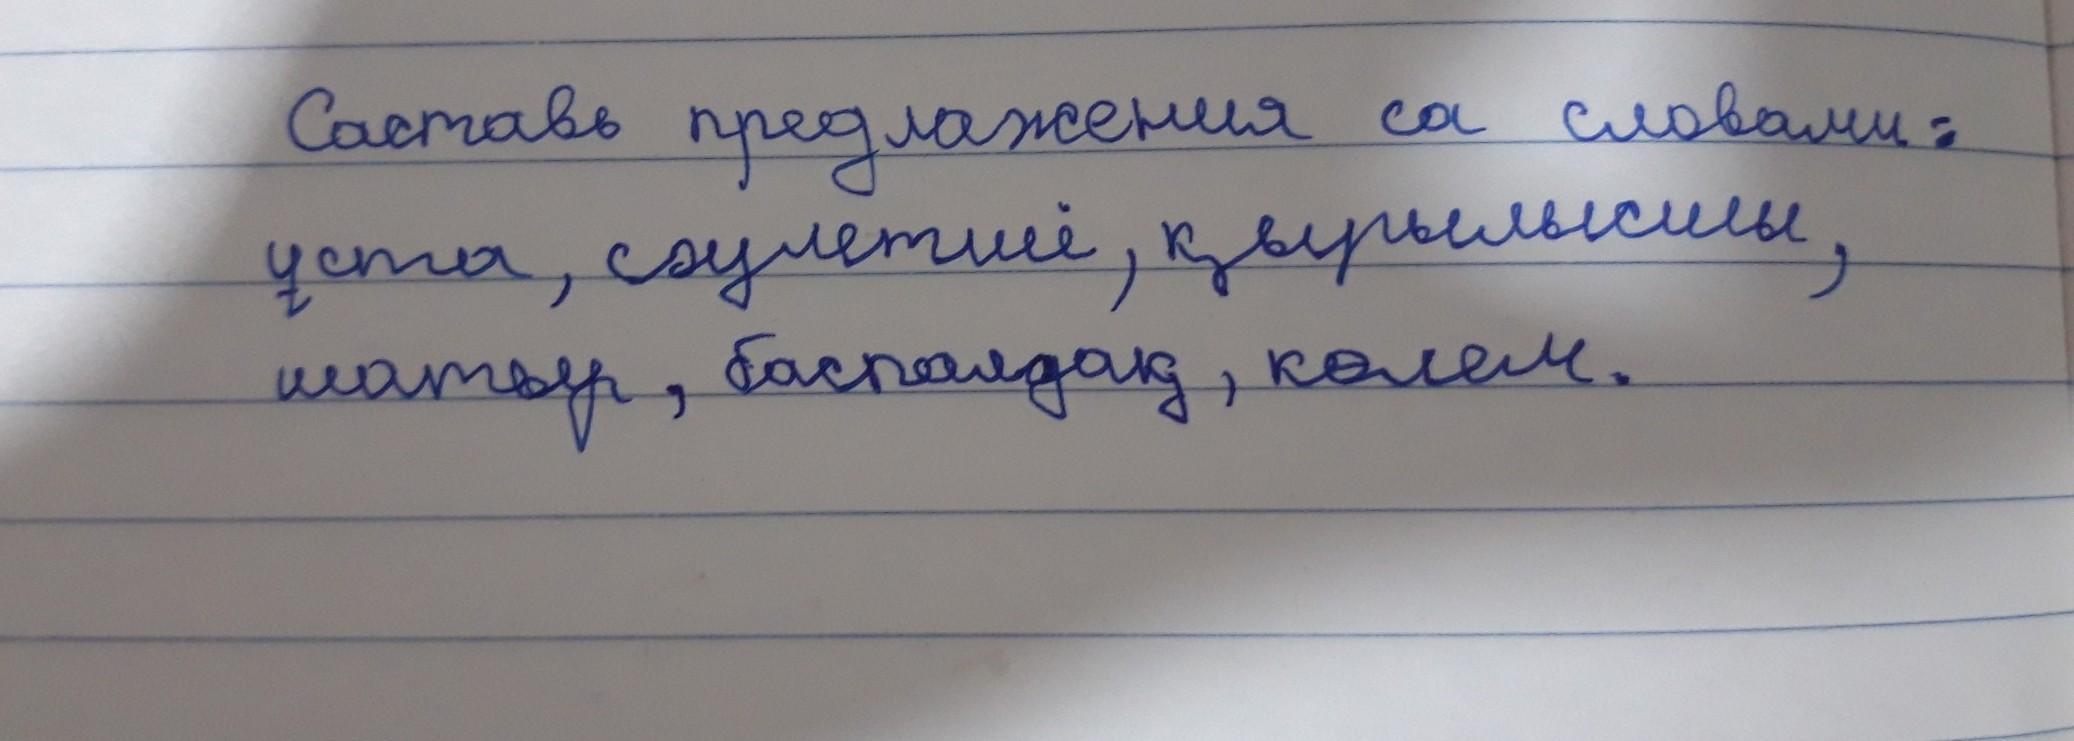 Саставь предлажения са словами:
ұста, сәулетші, қырылысшы,
шатыр, баспалдақ, көлем.